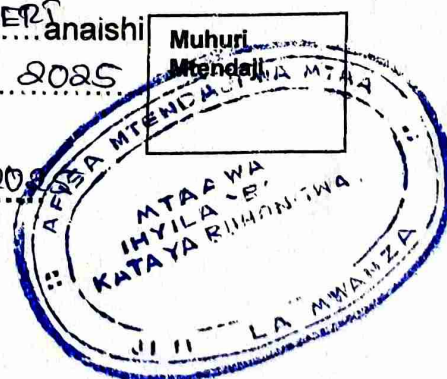 anaishi
2025
Muhuri
Mtendaji
AFISA MTENDAJI WA MTAA
MTAA WA
IHYILA "B"
KATA YA BUHONGWA
JIJI LA MWANZA